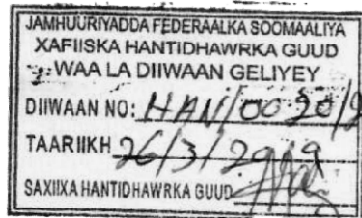 JAMHUURIYADDA FEDERAALKA SOOMAALIYA
XAFIISKA HANTIDHAWRKA GUUD
WAA LA DIIWAAN GELIYEY
DIIWAAN NO: HAN/0020/2
TAARIIKH 26/3/2019
SAXIIXA HANTIDHAWRKA GUUD